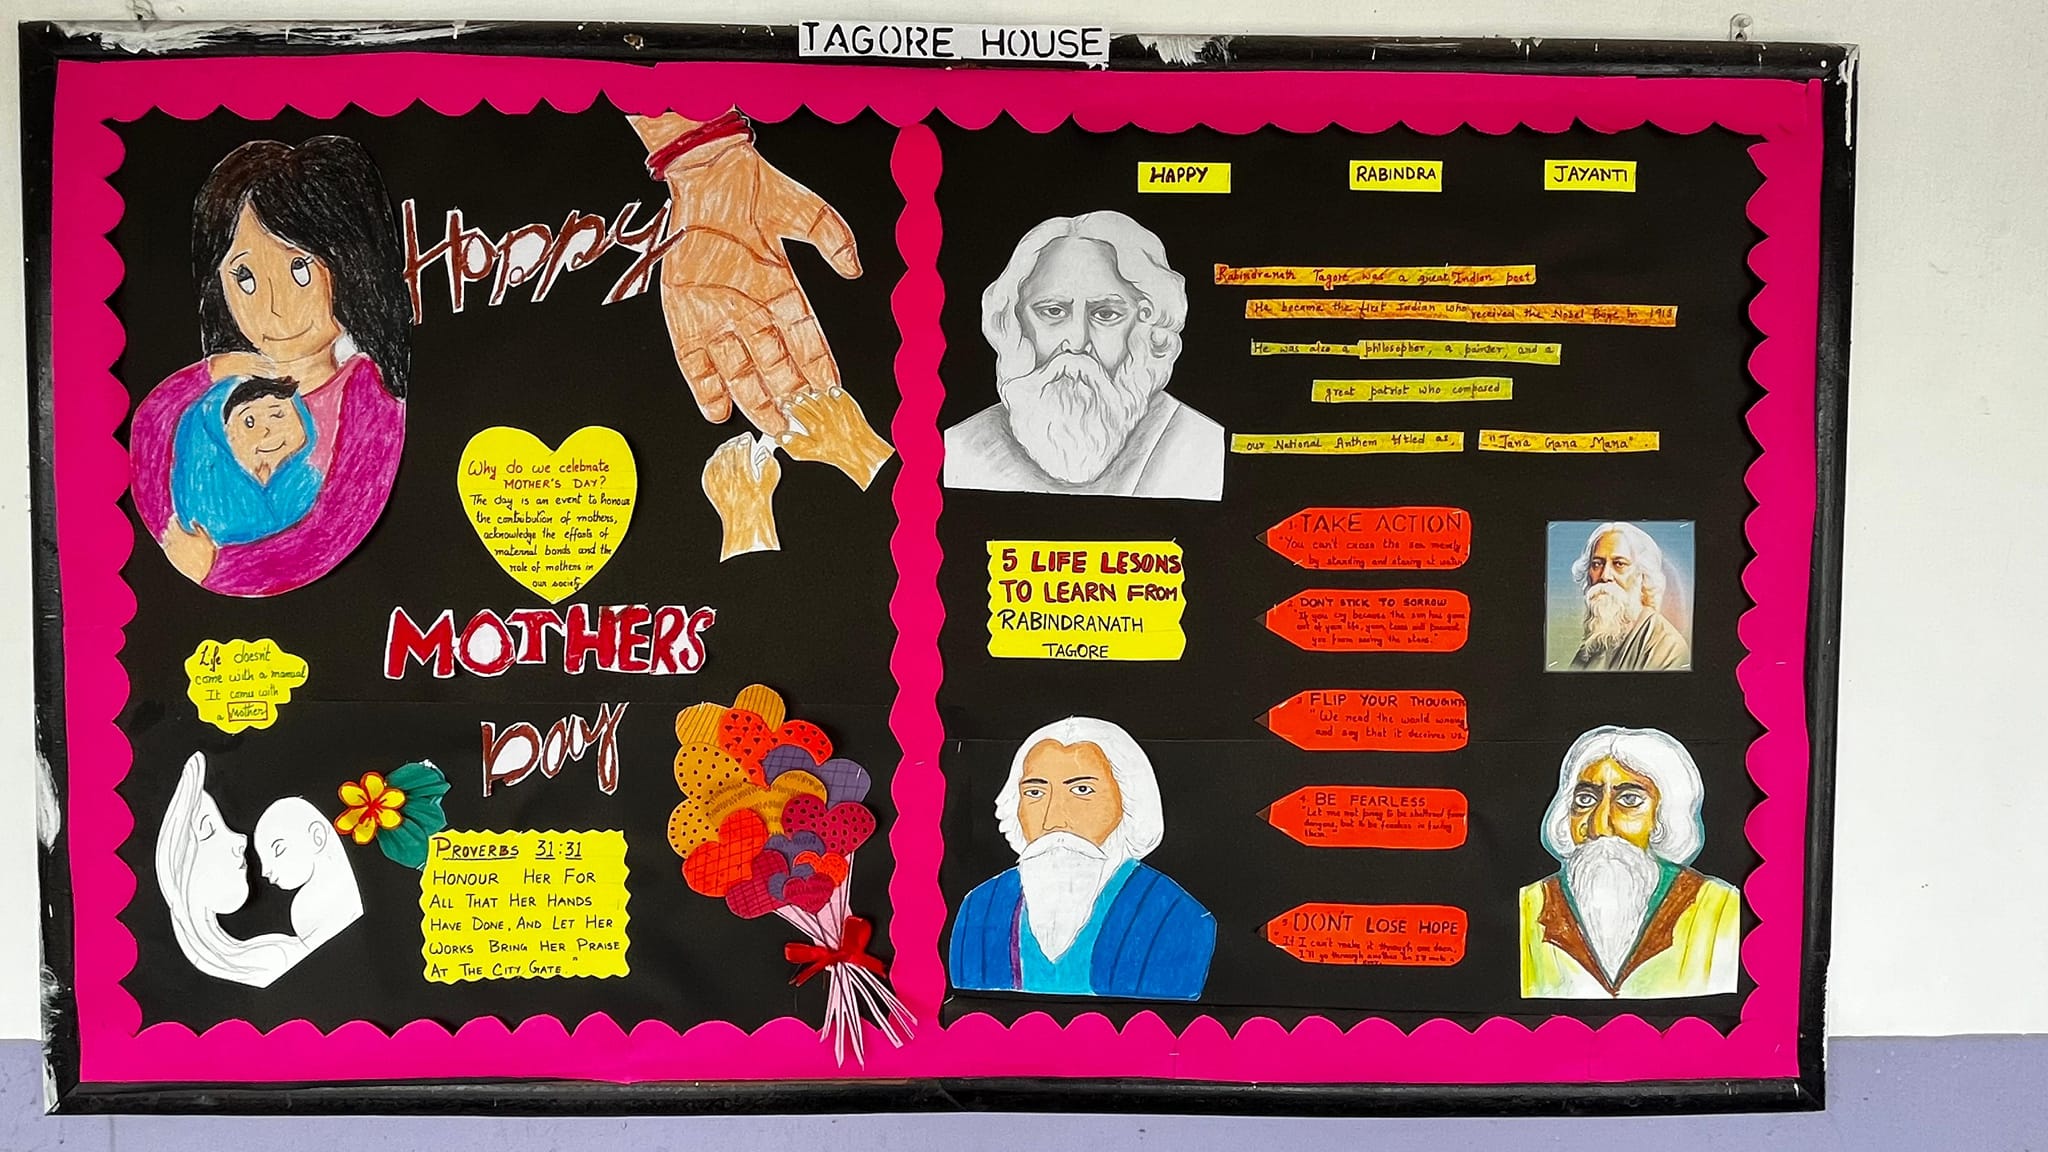 TAGORE HOUSE
Happy
Why do we celebrate
MOTHER'S DAY?
The day is an event to honour
the contribution of mothers,
acknowledge the efforts of
maternal bonds and the
role of mothers in
our society
MOTHERS
Day
Life doesn't
come with a manual
It comes with
a Mother
PROVERBS 31:31
HONOUR HER FOR
ALL THAT HER HANDS
HAVE DONE, AND LET HER
WORKS BRING HER PRAISE
AT THE CITY GATE."
HAPPY RABINDRA JAYANTI
Rabindranath Tagore was a great Indian poet
He became the first Indian who received the Nobel in 1913
He was also a philosopher, a painter, and a
great patriot who composed
our National Anthem titled as, "Jana Gana Mana"
5 LIFE LESONS
TO LEARN FROM
RABINDRANATH
TAGORE
1. TAKE ACTION
"You can't cross the sea merely
by standing and staring at water
2. DON'T STICK TO SORROW
"If you cry because the sun has gone
out of your life, your tears will prevent
you from seeing the stars."
3 FLIP YOUR THOUGHTS
"We read the world wrong
and say that it deceives us.
4 BE FEARLESS
"Let me not pray to be sheltered from
dangers, but to be fearless in facing
them."
5 DON'T LOSE HOPE
"If I can't make it through one door,
I'll go through another or I'll make a